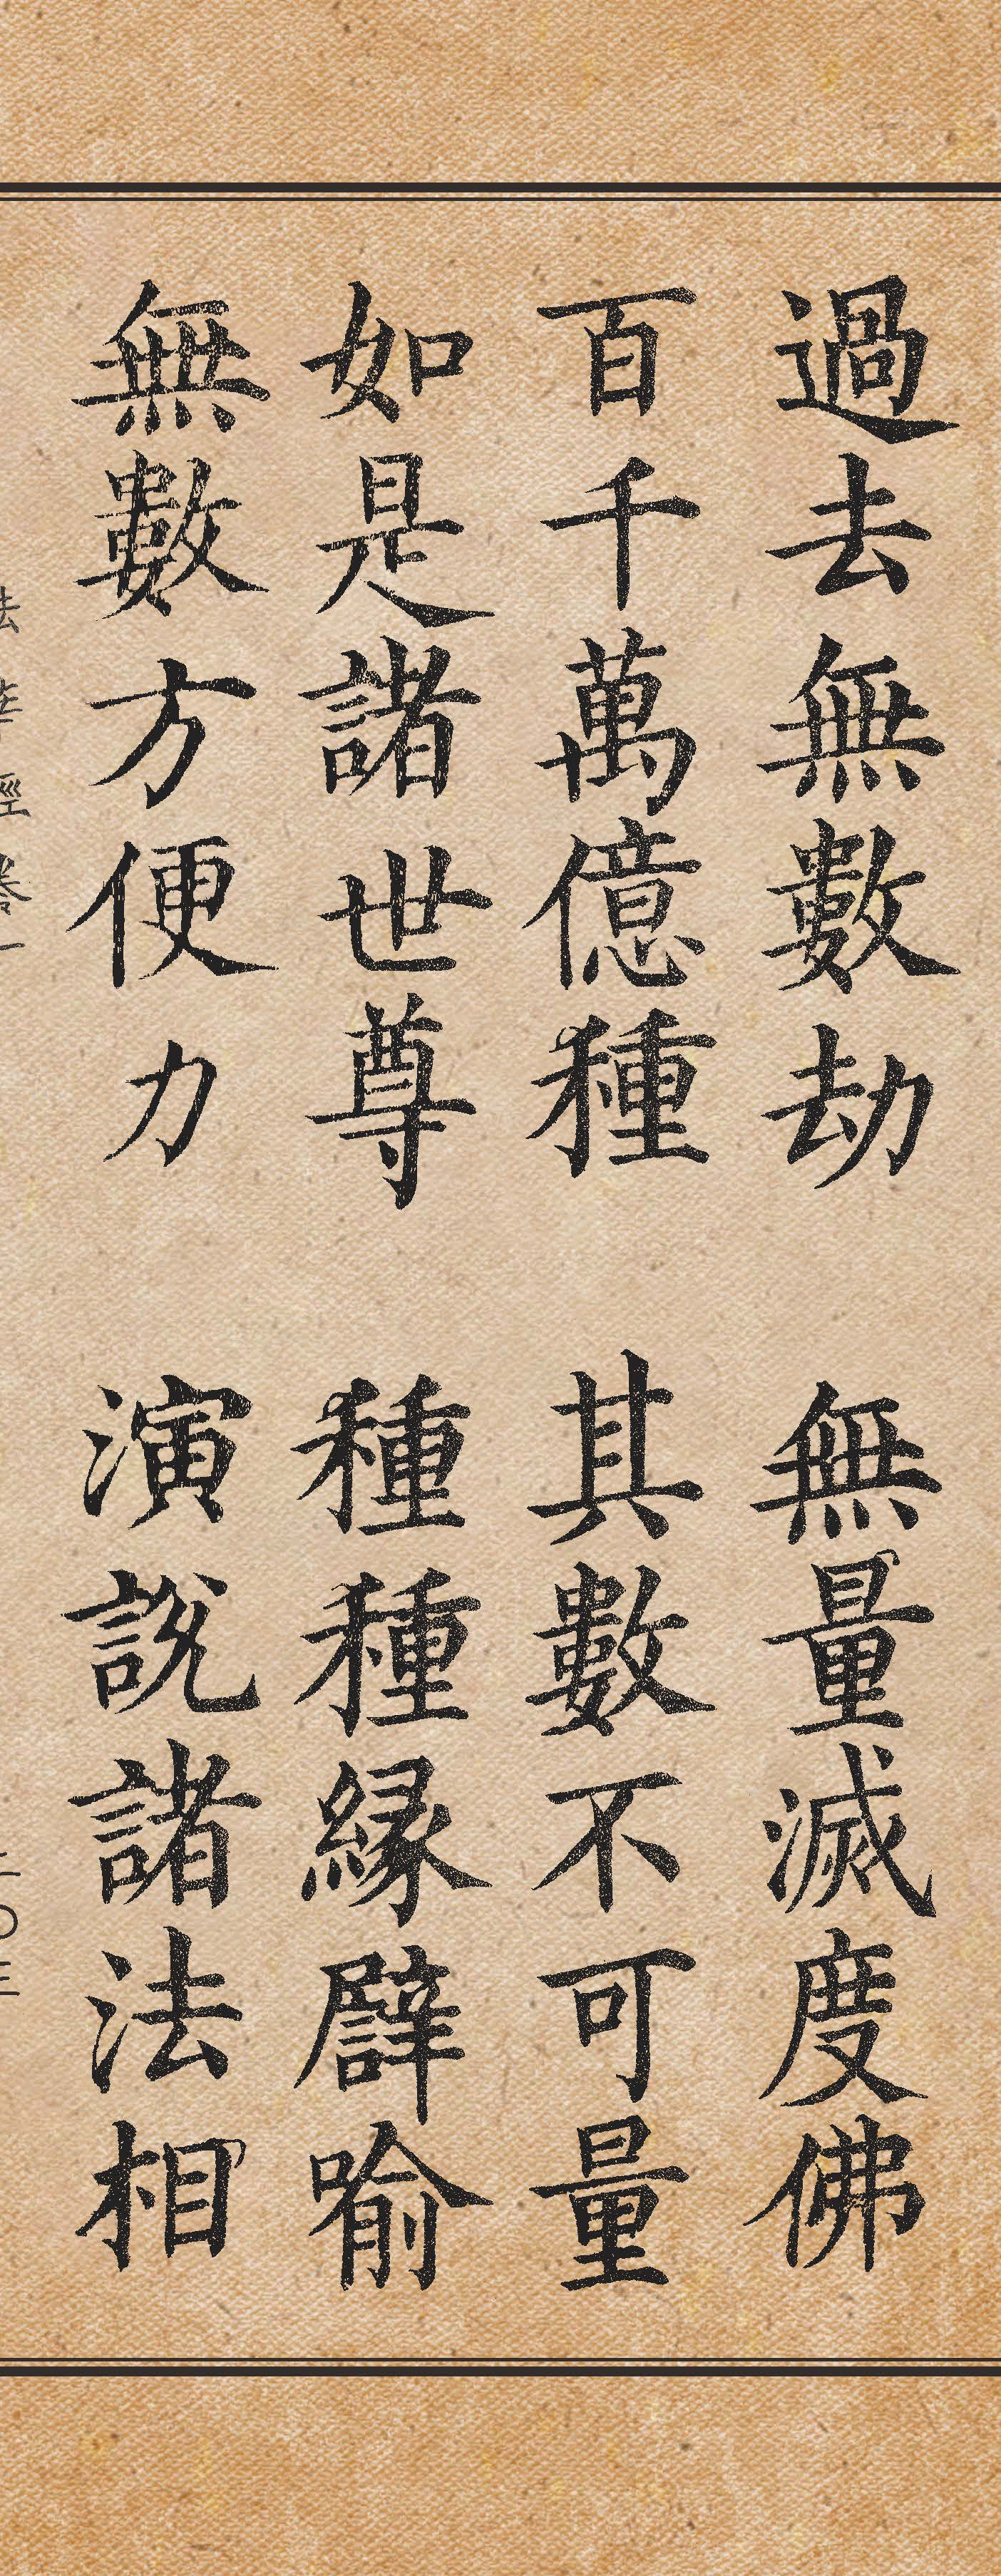 過去無數劫 無量滅度佛
百千萬億種 其數不可量
如是諸世尊 種種緣譬喻
無數方便力 演說諸法相
法華經卷一
二〇三